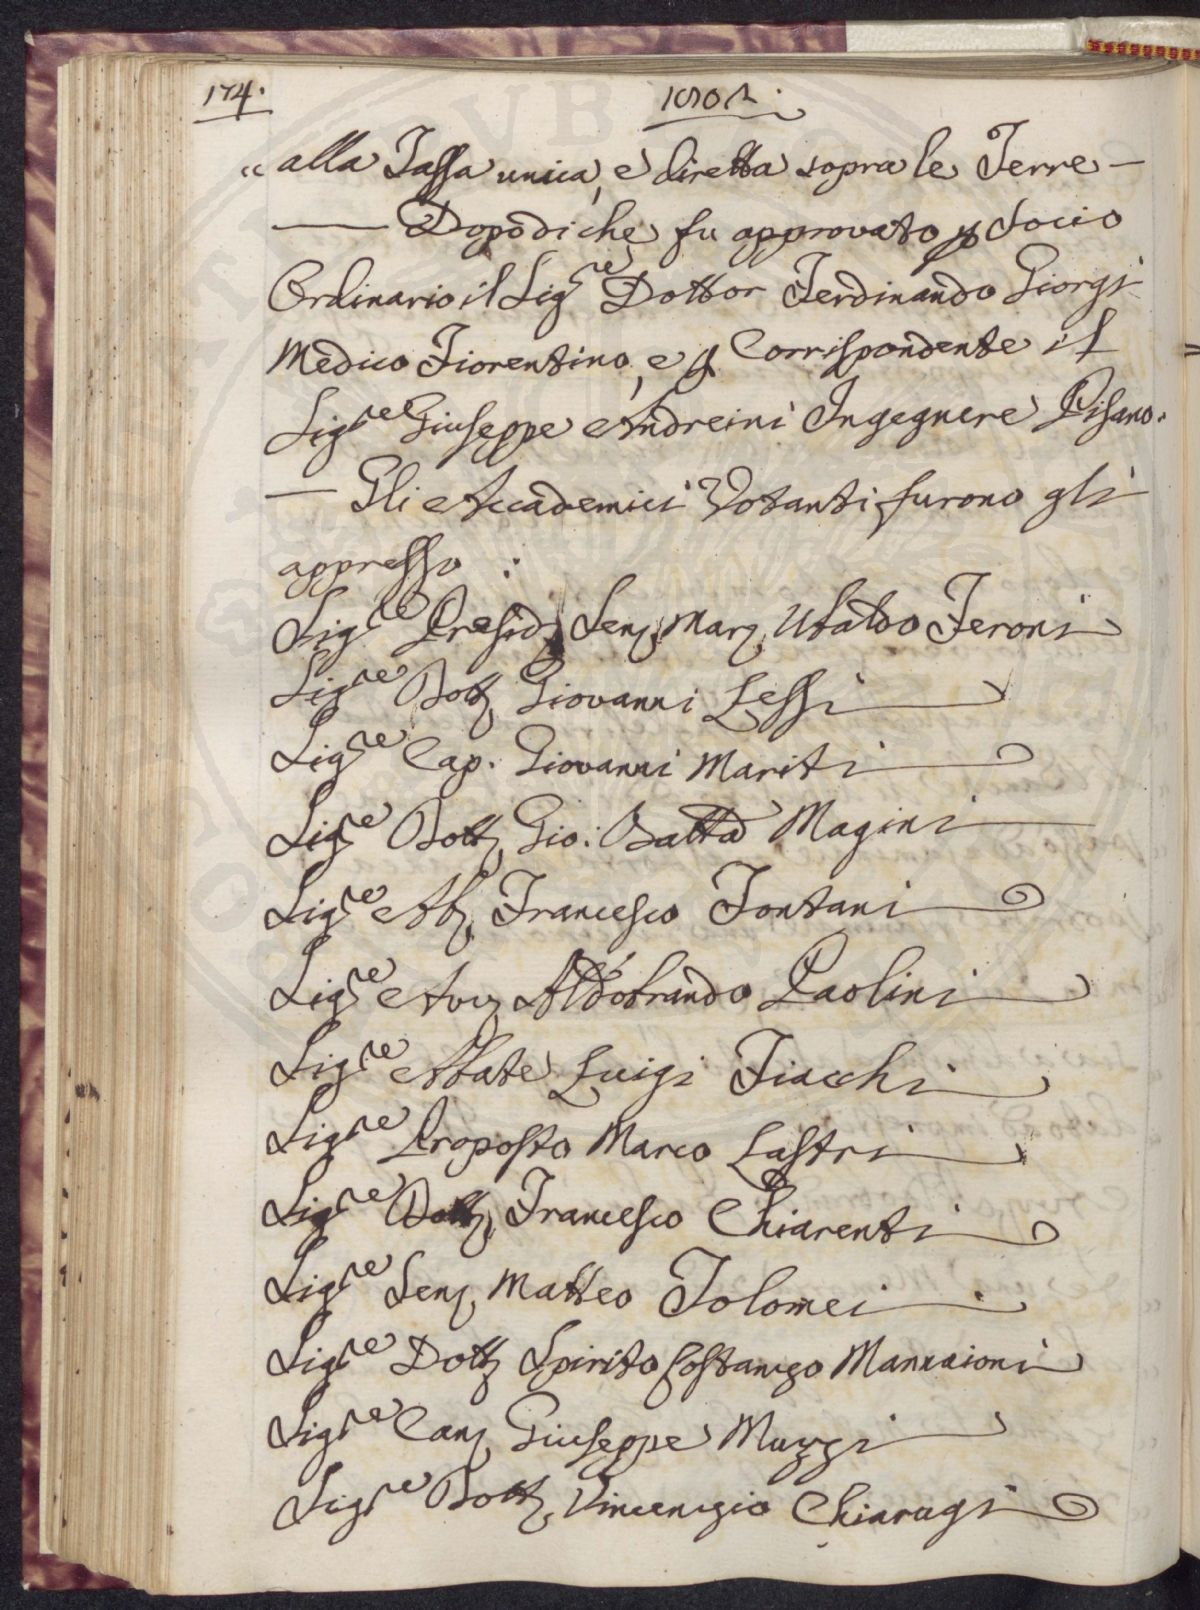 174. 1802.
“ alla Tassa unica, e diretta sopra le Terre —
— Dopodiche fu approvato p Socio
Ordinario il Sig.re Dottor Ferdinando Giorgi
Medico Fiorentino, e p Corrispondente il
Sig.re Giuseppe Andreini Ingegnere Pisano.
— Gli Accademici Votanti furono gli
appresso :
Sig.re Presid. Sen. Marc. Ubaldo Feroni
Sig.re Dott. Giovanni Lessi
Sig.re Cap. Giovanni Mariti
Sig.re Dott. Gio: Batta Magini
Sig.re Ab. Francesco Fontani
Sig.re Avv. Aldobrando Paolini
Sig.re Abate Luigi Fiacchi
Sig.re Proposto Marco Lastri
Sig.re Dott. Francesco Chiarenti
Sig.re Sen. Matteo Tolomei
Sig.re Dott. Spirito Costanzo Mannaioni
Sig.re Can. Giuseppe Muzzi
Sig.re Dott. Vincenzio Chiarugi